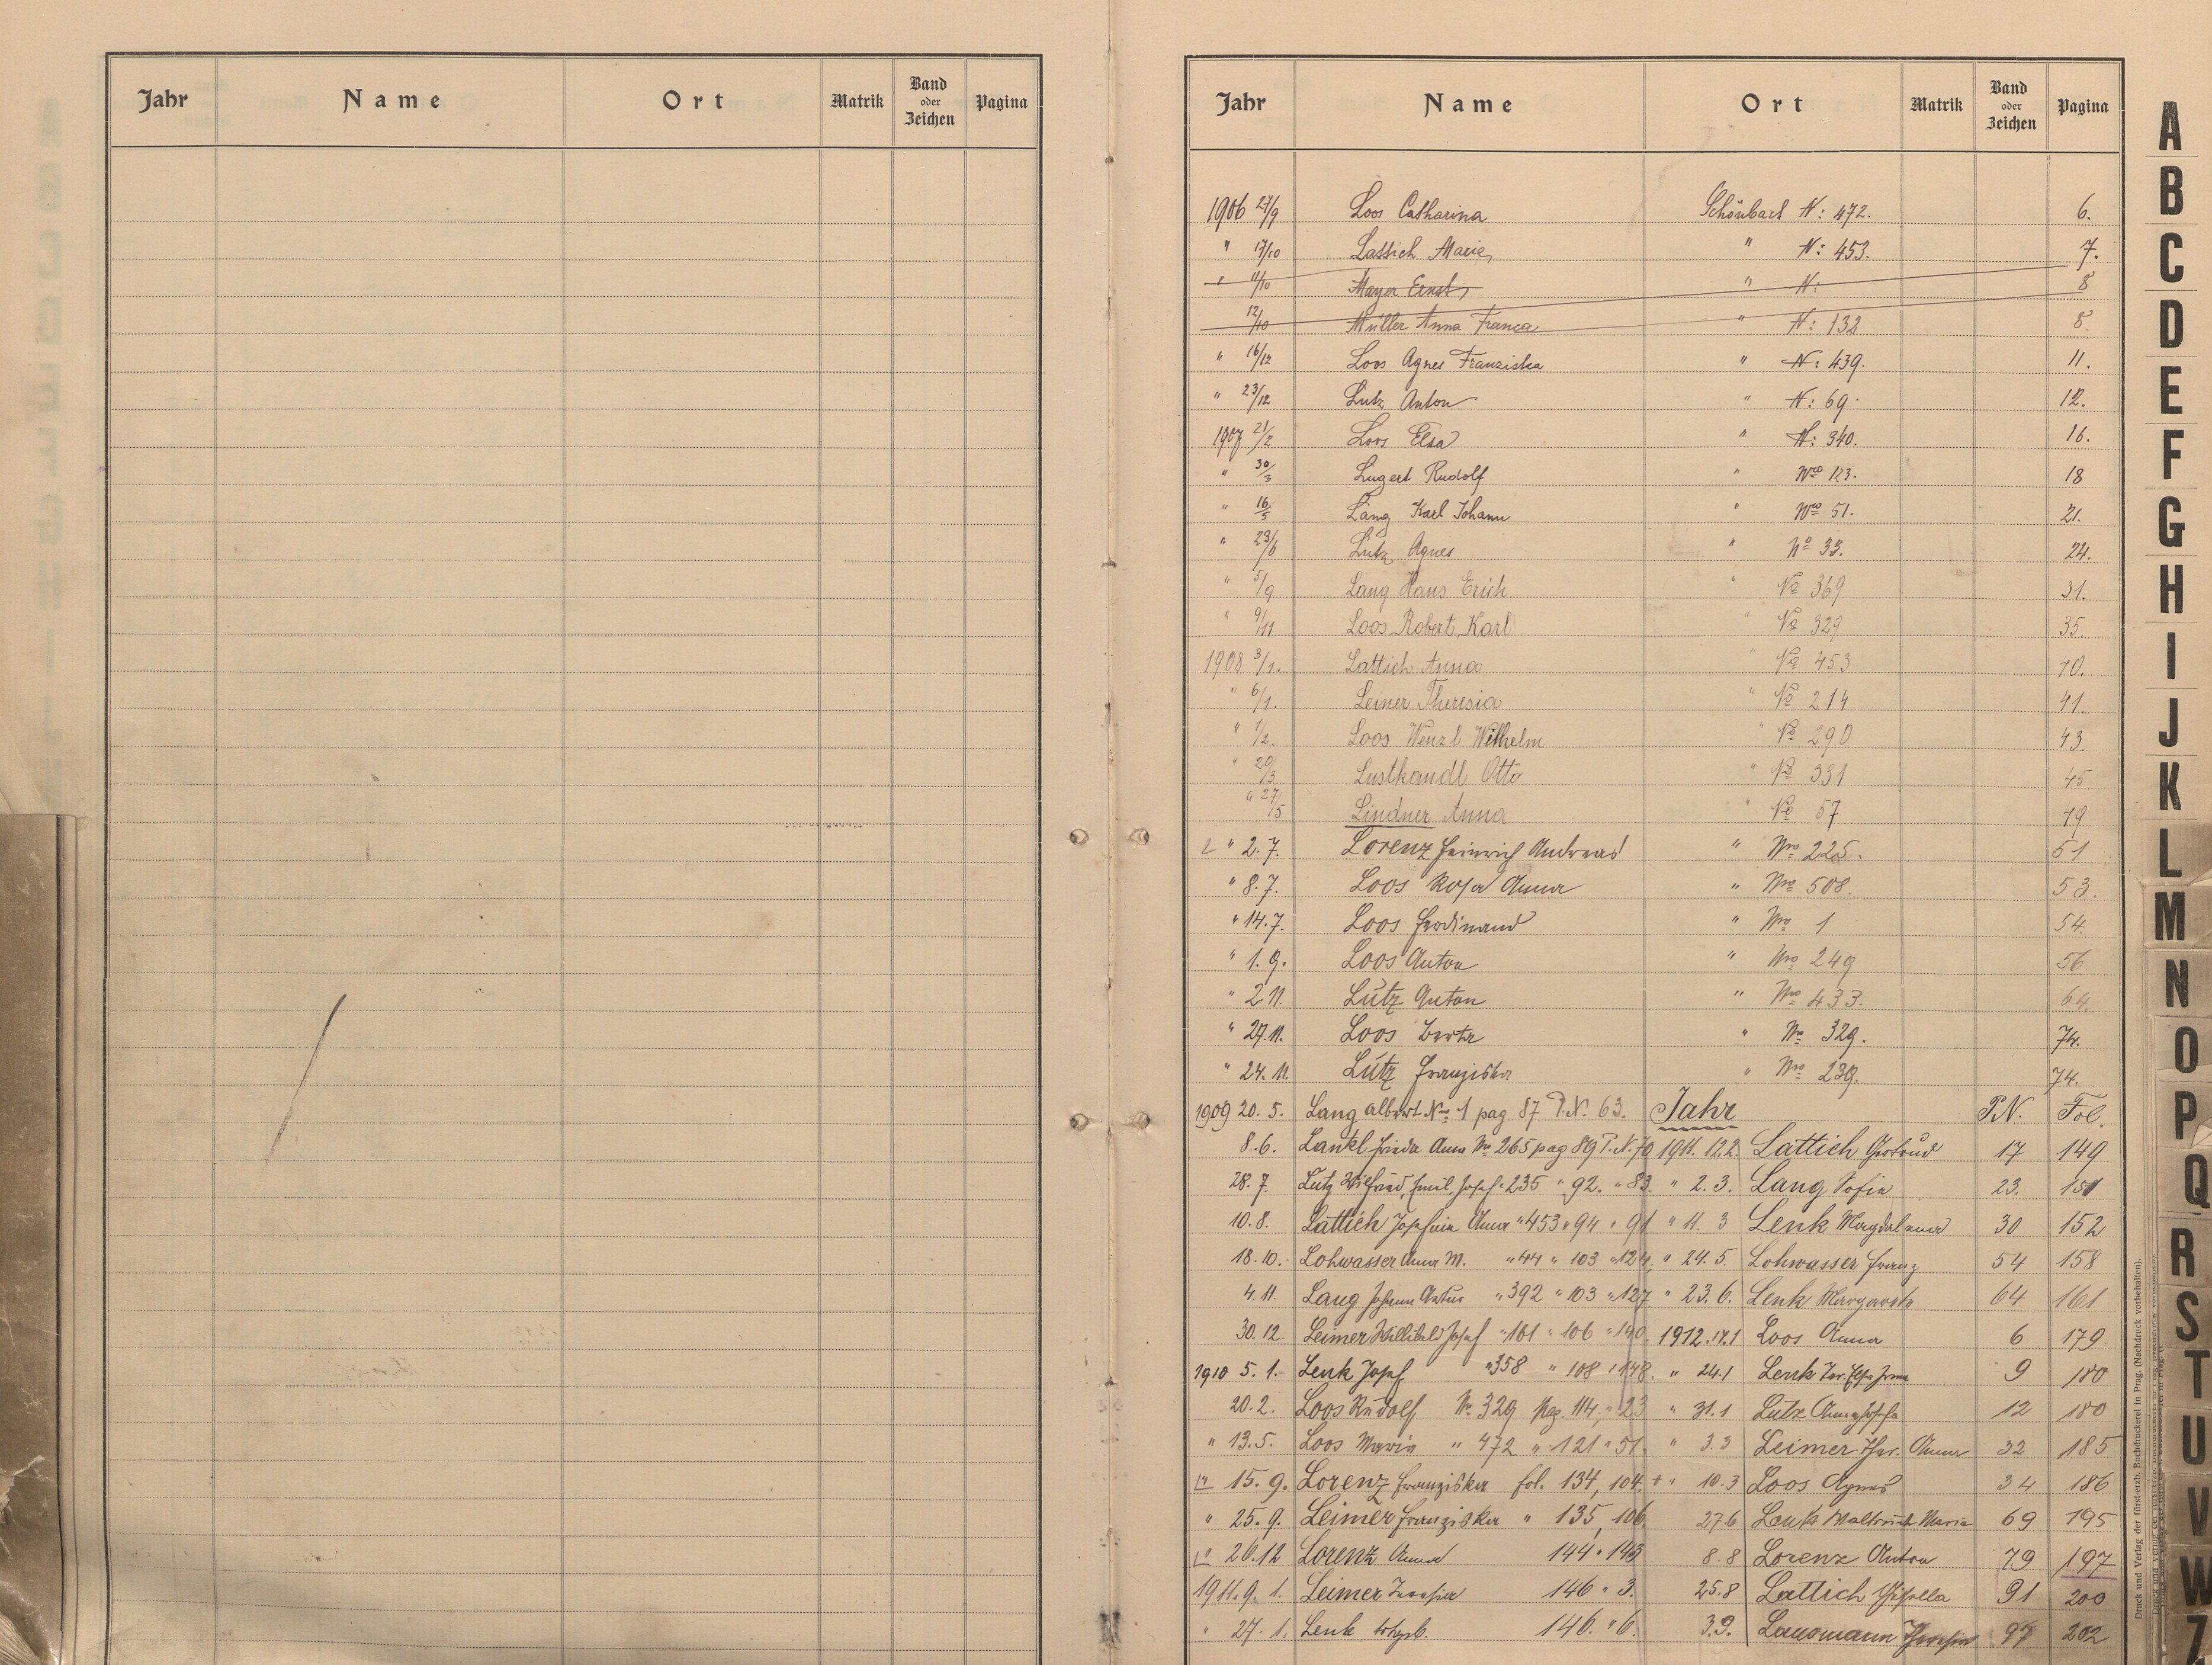 Jahr Name Ort Matrik Band oder Zeichen Pagina
Jahr Name Ort Matrik Band oder Zeichen Pagina
1906 27/9 Loos Catharina Schönbach N: 472. 6.
" 17/10 Lattich Marie " N: 453. 7.
" 11/10 Mayer Ernst " N: 8
12/10 Müller Anna Franca " N: 132 8.
" 16/12 Loos Agnes Franziska " N: 439. 11.
" 23/12 Lutz Anton " N: 69. 12.
1907 21/2 Loos Elsa " N: 340. 16.
" 30/3 Lugert Rudolf " Nro 123. 18
" 16/5 Lang Karl Johann " Nro 51. 21.
" 23/6 Lutz Agnes " No 33. 24.
" 5/9 Lang Hans Erich " No 369 31.
" 9/11 Loos Robert Karl " No 329 35.
1908 3/1. Lattich Anna " No 453 40.
" 6/1. Leiner Theresia " No 214 41.
" 1/2. Loos Wenzl Wilhelm " No 290 43.
" 20/3 Lustkandl Otto " No 331 45
" 27/5 Lindner Anna " No 57 49
" 2.7. Lorenz Heinrich Andreas " Nro 225. 51
" 8.7. Loos Rosa Anna " Nro 508. 53.
" 14.7. Loos Ferdinand " Nro 1 54.
" 1.9. Loos Anton " Nro 249 56
" 2.11. Lutz Anton " Nro 433. 64.
" 27.11. Loos Berta " Nro 329. 74.
" 24.11. Lutz Franziska " Nro 239. 74.
1909 20.5. Lang Albert No 1 pag 87 P.N. 63. Jahr P.N. Fol.
8.6. Lankl Frieda Anna No 265 pag 89 P.N. 70 1911. 12.2. Lattich Gertrud 17 149
28.7. Lutz Wilfried, Emil, Josef " 235 " 92. " 83. " 2.3. Lang Sofia 23. 151
10.8. Lattich Josefine Anna " 453 " 94 " 91 " 11.3 Lenk Magdalena 30 152
18.10. Lohwasser Anna M. " 44 " 103 " 124, " 24.5. Lohwasser Franz 54 158
4.11. Lang Johann Artur " 392 " 103 " 127 " 23.6. Lenk Margareta 64 161
30.12. Leimer Willibald Josef " 161 " 106 " 140. 1912. 17.1 Loos Anna 6 179
1910 5.1. Lenk Josef " 358 " 108 " 148. " 24.1 Lenk 9 180
20.2. Loos Rudolf No 329 Pag. 114, " 23 " 31.1 Lutz 12 180
" 13.5. Loos Maria " 472 " 121 " 51. " 3.3 Leimer Anna 32 185
" 15.9. Lorenz Franziska fol. 134, 104. + " 10.3 Loos Agnes 34 186
" 25.9. Leimer Franziska " 135, 106. 27.6 Lenk Waltrud Maria 69 195
" 26.12 Lorenz Anna 144 " 143 8.8 Lorenz Anton 79 197
1911. 9.1. Leimer Theresia 146 " 3. 25.8 Lattich 91 200
" 27.1. Lenk 146. " 6. 3.9. Lausmann Theresia 97 202
A
B
C
D
E
F
G
H
I
J
K
L
M
N
O
P
Q
R
S
T
U
V
W
Z
Druck und Verlag der fürst-erzb. Buchdruckerei in Prag. (Nachdruck vorbehalten).